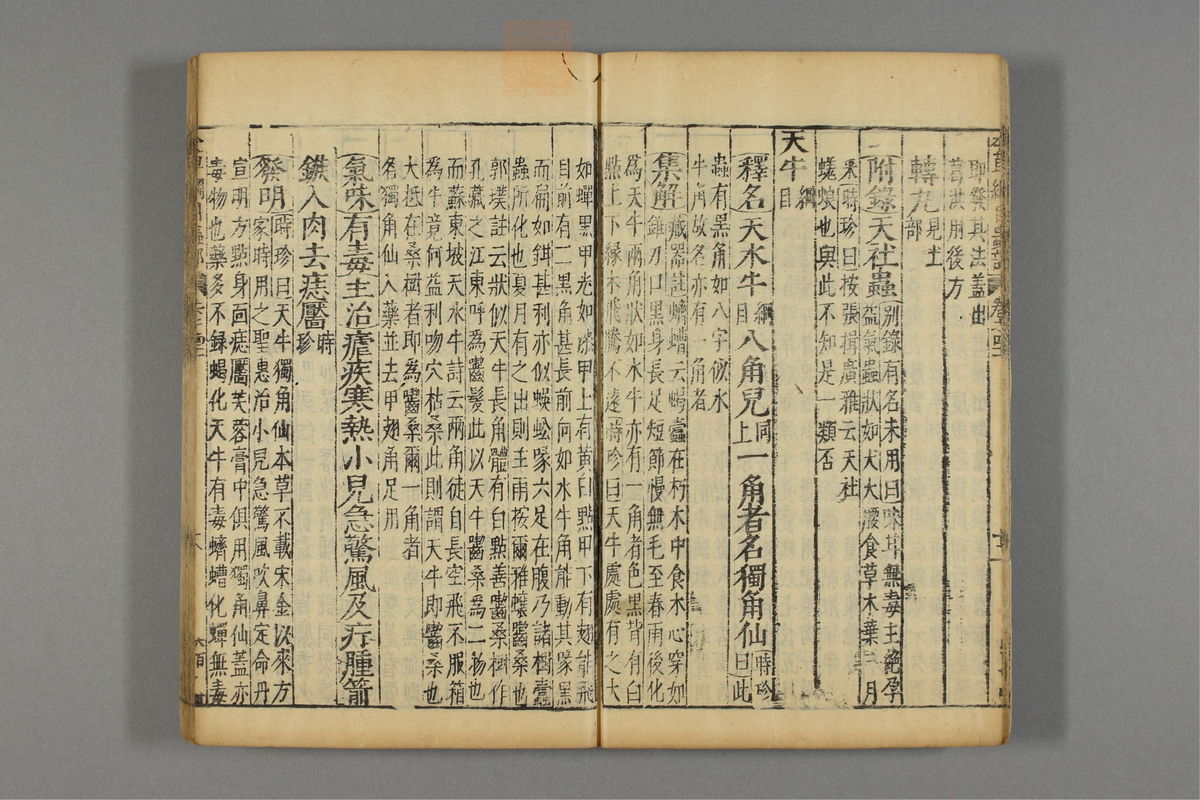 即發其法蓋出
葛洪肘後方
轉丸見土部
附錄天社蟲別錄有名未用曰味甘無毒主絕孕
益氣蟲狀如大大腰食草木葉三月
采時珍曰按張揖廣雅云天社
蜣蜋也與此不知是一類否
天牛綱目
釋名天水牛綱目八角兒同上一角者名獨角仙時珍曰此
蟲有黑角如八字似水
牛角故名亦有一角者
集解藏器註蠐螬云蝎蠹在朽木中食木心穿如
錐刀口黑身長足短節慢無毛至春雨後化
為天牛兩角狀如水牛亦有一角者色黑背有白
點上下緣木飛騰不遠時珍曰天牛處處有之大
如蟬黑甲光如漆甲上有黃白點甲下有翅能飛
目前有二黑角甚長前向如水牛角能動其喙黑
而扁如鉗甚利亦似蜈蚣喙六足在腹乃諸樹蠹
蟲所化也夏月有之出則主雨按爾雅蠰齧桑也
郭璞註云狀似天牛長角體有白點善齧桑樹作
孔藏之江東呼為齧髮此以天牛齧桑為二物也
而蘇東坡天水牛詩云兩角徒自長空飛不服箱
為牛竟何益利吻穴枯桑此則謂天牛即齧桑也
大抵在桑樹者即為齧桑爾一角者
名獨角仙入藥並去甲翅角足用
氣味有毒主治瘧疾寒熱小兒急驚風及疔腫箭
鏃入肉去痣靨時珍
發明時珍曰天牛獨角仙本草不載宋金以來方
家時用之聖惠治小兒急驚風吹鼻定命丹
宣明方點身面痣靨芙蓉膏中俱用獨角仙蓋亦
毒物也藥多不錄蝎化天牛有毒蠐螬化蟬無毒